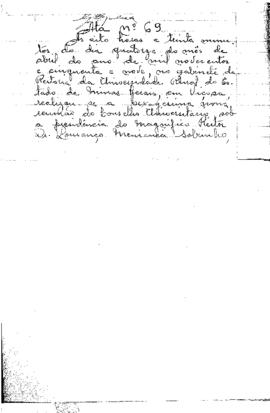 Ata nº 69
Às oito horas e trinta minu-
tos do dia quatorze do mês de
abril do ano de mil novecentos
e cinquenta e nove, no gabinete da
Reitoria da Universidade Rural do Es-
tado de Minas Gerais, em Viçosa,
realizou-se a sexagésima nona
reunião do Conselho Universitário, sob
a presidência do Magnífico Reitor
Dr. Lourenço Menicucci Sobrinho,